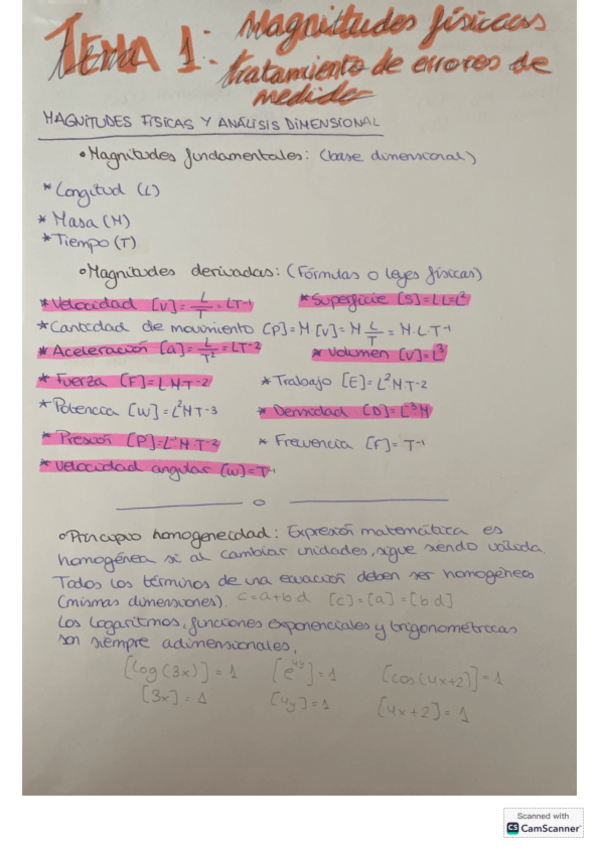 TEMA 1: Magnitudes físicas
tratamiento de errores de
medida
MAGNITUDES FÍSICAS Y ANÁLISIS DIMENSIONAL
• Magnitudes fundamentales: (base dimensional)
* Longitud (L)
* Masa (M)
* Tiempo (T)
• Magnitudes derivadas: (Fórmulas o leyes físicas)
* Velocidad [V] = L/T = LT⁻¹ * Superficie [S] = L·L = L²
* Cantidad de movimiento [P] = M[V] = M L/T = M·L·T⁻¹
* Aceleración [a] = L/T² = LT⁻² * Volumen [V] = L³
* Fuerza [F] = LMT⁻² * Trabajo [E] = L²MT⁻²
* Potencia [W] = L²MT⁻³ * Densidad [D] = L⁻³M
* Presión [P] = L⁻¹MT⁻² * Frecuencia [F] = T⁻¹
* Velocidad angular [W] = T⁻¹
• Principio homogeneidad: Expresión matemática es
homogénea si al cambiar unidades, sigue siendo válida.
Todos los términos de una ecuación deben ser homogéneos
(mismas dimensiones). c = a + b d [c] = [a] = [b d]
Los logaritmos, funciones exponenciales y trigonométricas
son siempre adimensionales.
[log(3x)] = 1 [e⁴ʸ] = 1 [cos(4x+2)] = 1
[3x] = 1 [4y] = 1 [4x+2] = 1
Scanned with
CS CamScanner